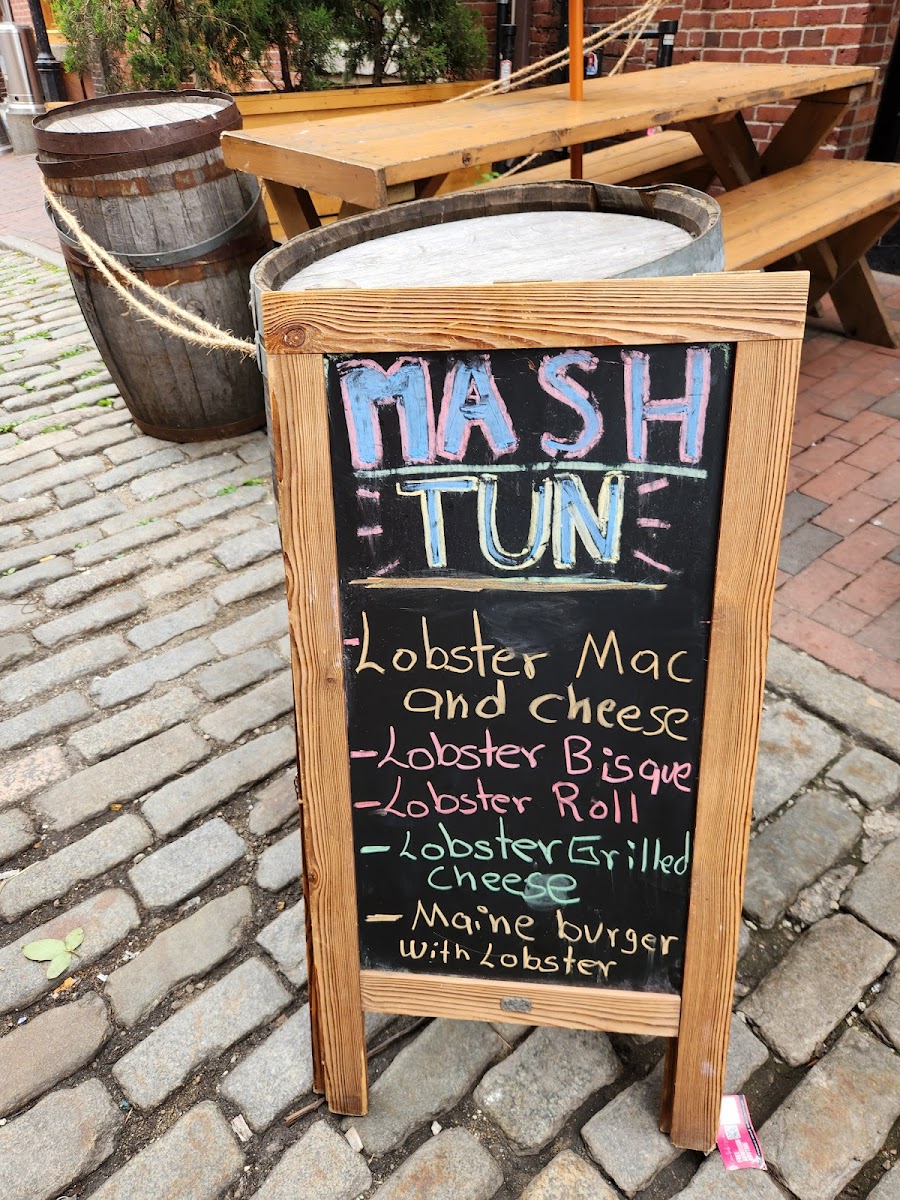 MASH
TUN
-Lobster Mac
and cheese
-Lobster Bisque
-Lobster Roll
-Lobster Grilled
cheese
- Maine burger
with Lobster